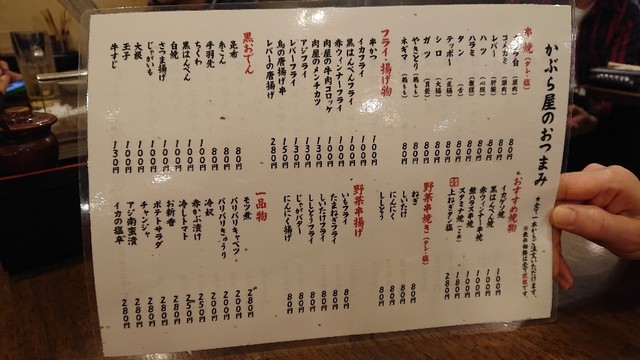 かぶら屋のおつまみ
串焼(タレ・塩)
コメカミ
レバー
ハツ
ハラミ
タン
テッポー
シロ
ガツ
やきとり
ネギマ
80円
80円
80円
80円
80円
80円
80円
80円
80円
フライ・揚げ物
串かつ 100円
イカフライ 100円
黒はんぺんフライ 100円
赤ウィンナーフライ 100円
肉屋の牛肉コロッケ 100円
肉屋のメンチカツ 130円
アジフライ 130円
レバーフライ 100円
鳥の唐揚げ串 150円
レバーの唐揚げ 280円
黒おでん
昆布 80円
糸こん 80円
手羽先 80円
ちくわ 100円
黒はんぺん 100円
白焼 100円
さつま揚げ 100円
じゃがいも 100円
大根 100円
玉子 100円
牛すじ 130円
おすすめ焼物
イカゲソ焼 100円
黒はんぺん焼 100円
赤ウィンナー串焼 100円
豚ハラス串焼 100円
スタミナ焼 180円
上ねぎタン塩 280円
野菜串焼き(タレ・塩)
ねぎ 80円
しいたけ 80円
にんにく 80円
ししとう 80円
野菜串揚げ
いもフライ 80円
たまねぎフライ 80円
しいたけフライ 80円
ししとうフライ 80円
じゃがバター 80円
にんにく揚げ 80円
一品物
モツ煮 280円
バリバリキャベツ 200円
バリバリきゅうり 200円
冷奴 200円
赤かぶ漬け 250円
冷しトマト 250円
お新香 280円
ポテトサラダ 280円
チャンジャ 280円
アジ南蛮漬 280円
イカの塩辛 280円